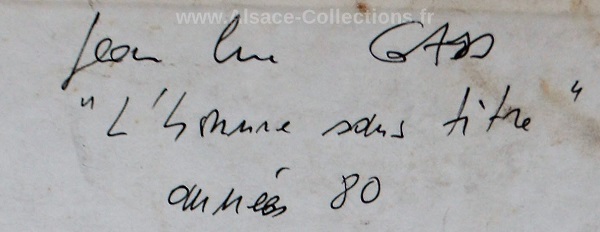 www.Alsace-Collections.fr
Jean Luc GASS
"L'homme sans titre"
années 80